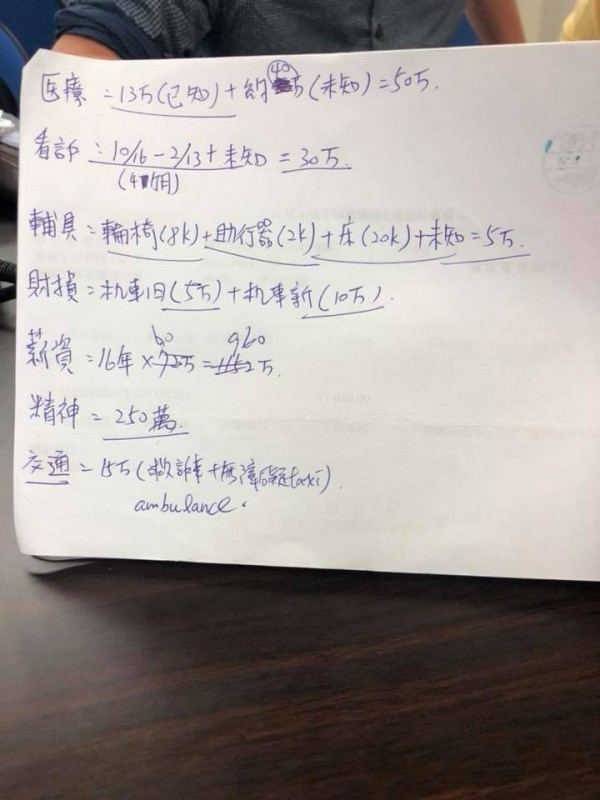 医療 = 13万(已知) + 約40万(未知) = 50万.
看診 = 10/16 - 2/13 + 未知 = 30万.
(4個月)
輔具 = 輪椅(8k) + 助行器(2k) + 床(20k) + 未知 = 5万.
財損 = 机車旧(5万) + 机車新(10万).
60 960
薪資 = 16年 × 72万 = 1152万.
精神 = 250萬.
交通 = 15万(救護車 + 無障礙taxi).
ambulance.